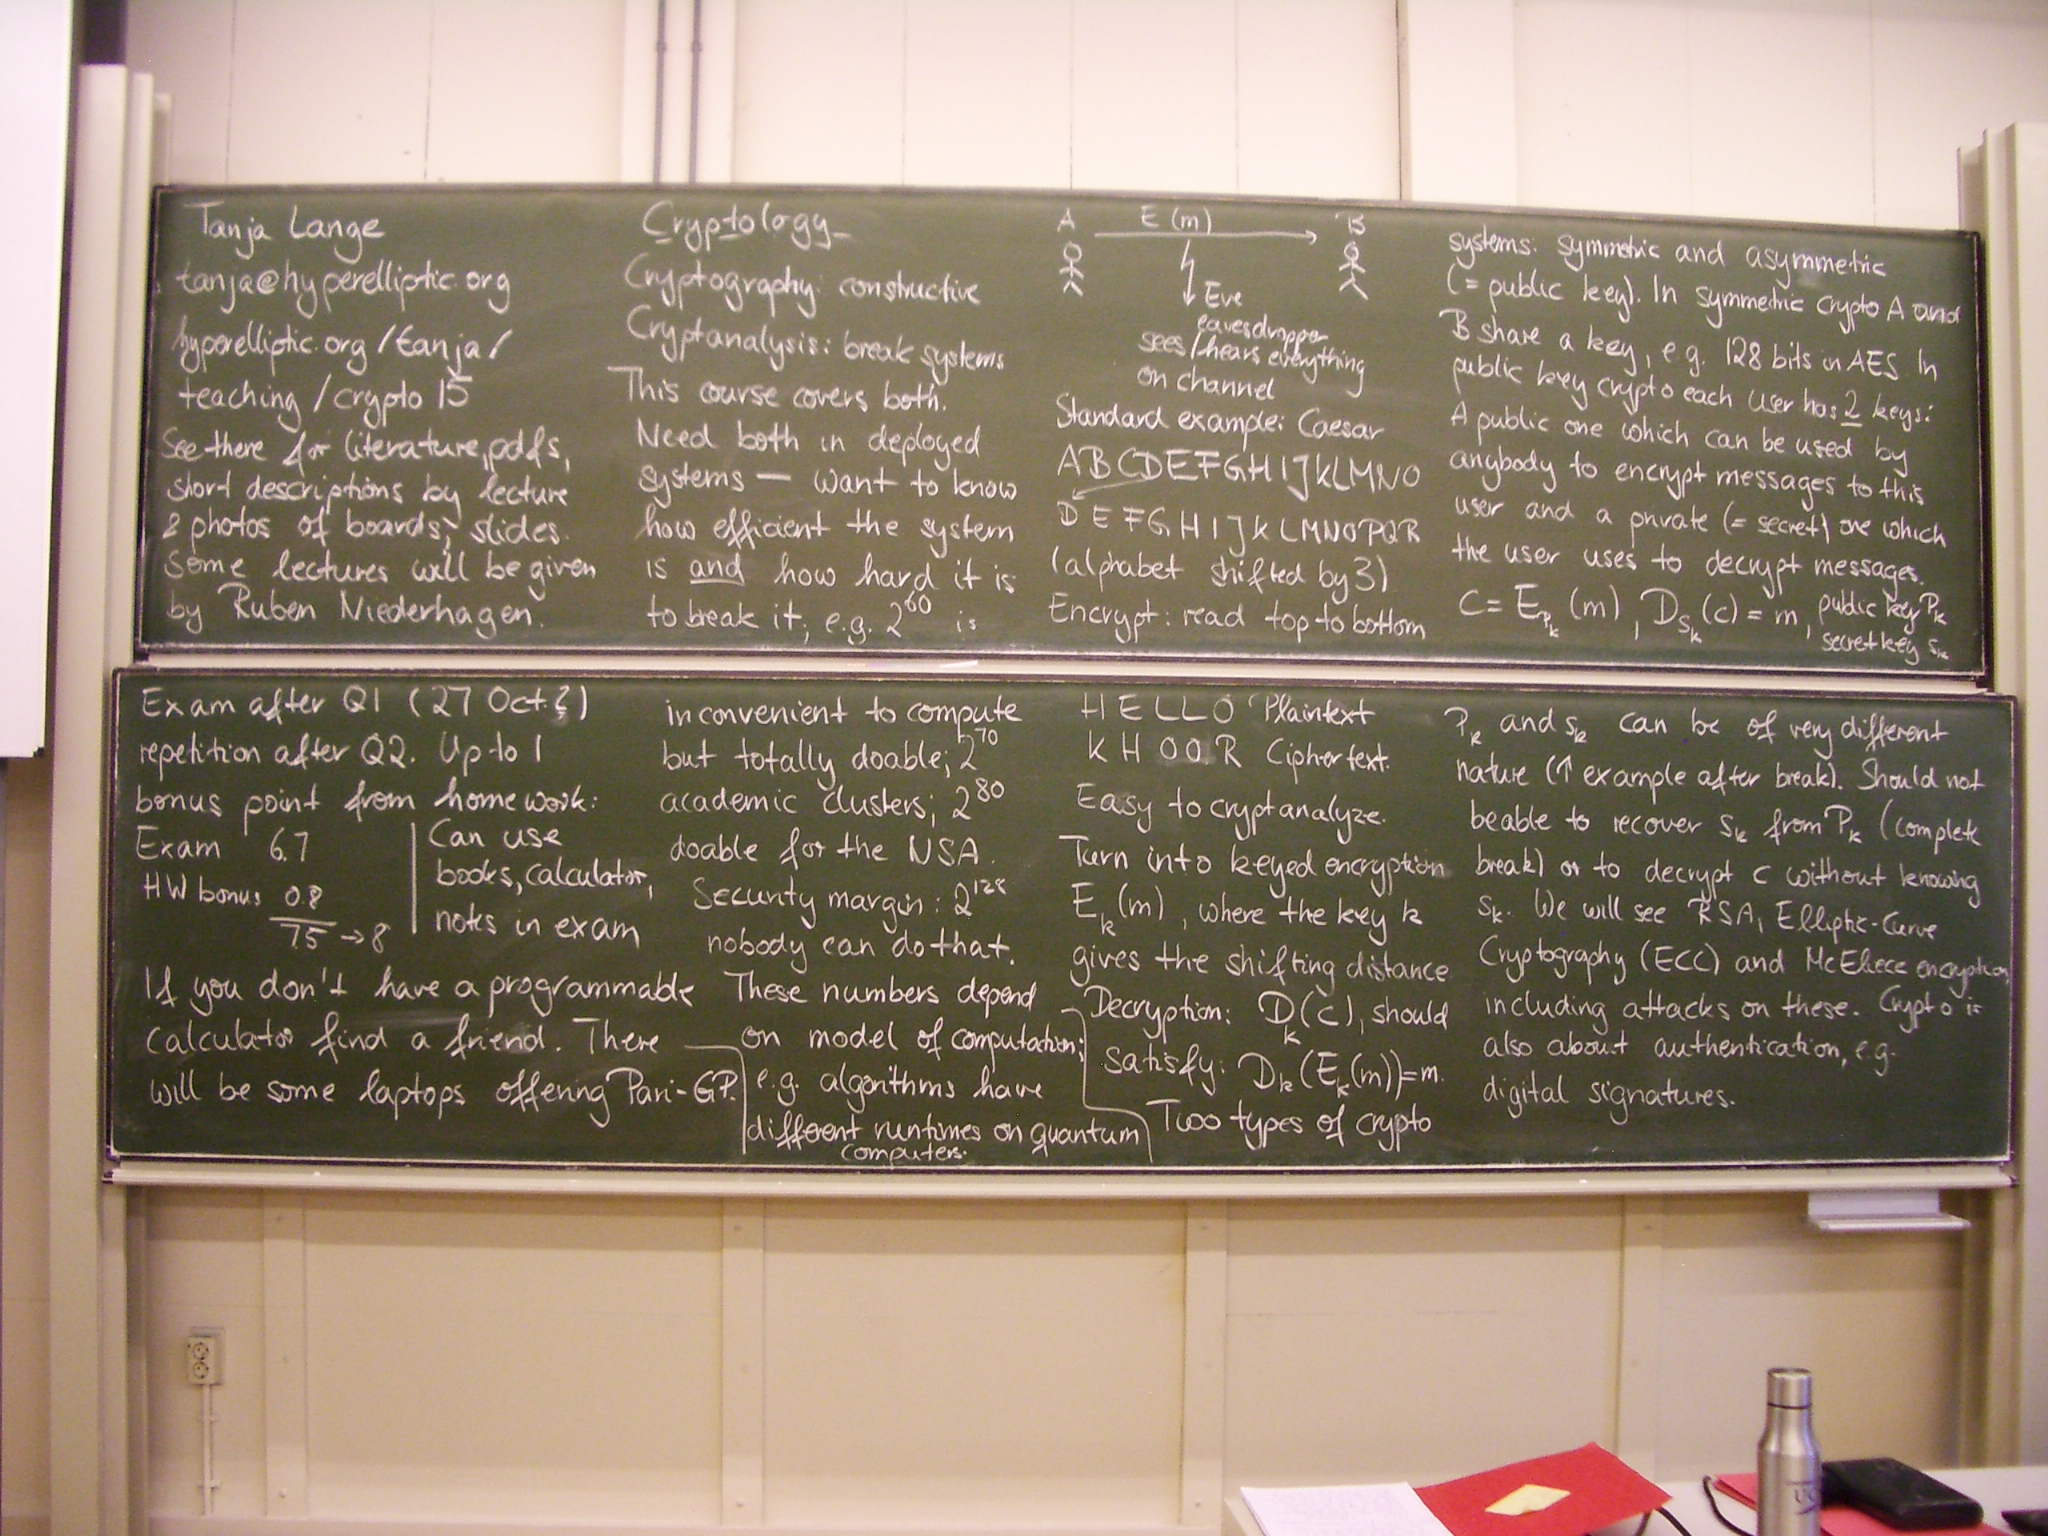 Tanja Lange
tanja@hyperelliptic.org
hyperelliptic.org/tanja/
teaching/crypto15
See there for literature, pdfs,
short descriptions by lecture
& photos of boards, slides.
Some lectures will be given
by Ruben Niederhagen.
Exam after Q1 (27 Oct.?)
repetition after Q2. Up to 1
bonus point from homework:
Exam 6.7
HW bonus 0.8
7.5 → 8
Can use
books, calculator,
notes in exam
If you don't have a programmable
calculator find a friend. There
will be some laptops offering Pari-GP.
Cryptology
Cryptography: constructive
Cryptanalysis: break systems
This course covers both.
Need both in deployed
systems — want to know
how efficient the system
is and how hard it is
to break it, e.g. 2^60 is
inconvenient to compute
but totally doable; 2^70
academic clusters; 2^80
doable for the NSA.
Security margin: 2^128
nobody can do that.
These numbers depend
on model of computation;
e.g. algorithms have
different runtimes on quantum
computers.
A E(m) B
Eve
eavesdropper
sees/hears everything
on channel
Standard example: Caesar
ABCDEFGHIJKLMNO
DEFGHIJKLMNOPQR
(alphabet shifted by 3)
Encrypt: read top to bottom
HELLO Plaintext
KHOOR Ciphertext.
Easy to cryptanalyze.
Turn into keyed encryption
E_k(m), where the key k
gives the shifting distance
Decryption: D_k(c), should
satisfy: D_k(E_k(m))=m.
Two types of crypto
systems: symmetric and asymmetric
(= public key). In symmetric crypto A and
B share a key, e.g. 128 bits in AES. In
public key crypto each user has 2 keys:
A public one which can be used by
anybody to encrypt messages to this
user and a private (= secret) one which
the user uses to decrypt messages.
C = E_Pk(m), D_Sk(c) = m, public key Pk
secret key sk
Pk and sk can be of very different
nature (↑ example after break). Should not
be able to recover sk from Pk (complete
break) or to decrypt c without knowing
sk. We will see RSA, Elliptic-Curve
Cryptography (ECC) and McEliece encryption,
including attacks on these. Crypto is
also about authentication, e.g.
digital signatures.